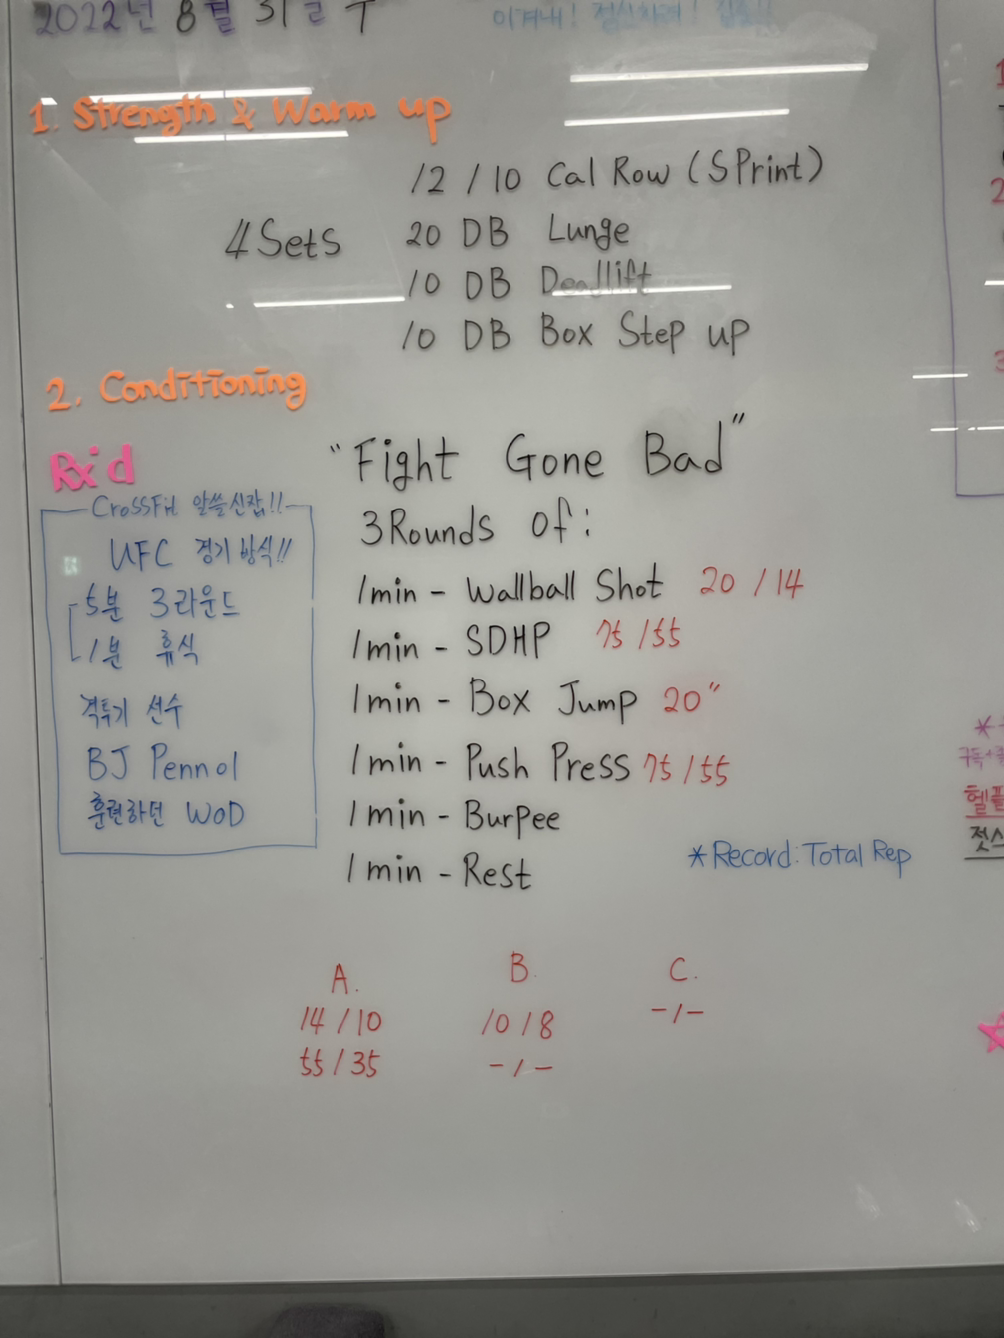 2022년 8월 31일 수
이겨내! 정신차려!
1. Strength & Warm up
12 / 10 Cal Row (SPrint)
4Sets 20 DB Lunge
10 DB Deadlift
10 DB Box Step up
2. Conditioning
Rx'd
"Fight Gone Bad"
CrossFit 알쓸신잡!!
UFC 경기 방식!!
5분 3라운드
1분 휴식
격투기 선수
BJ Penn이
훈련하던 WOD
3Rounds of:
1min - Wallball Shot 20 / 14
1min - SDHP 75 / 55
1min - Box Jump 20"
1min - Push Press 75 / 55
1min - Burpee
1min - Rest
*Record: Total Rep
A. B. C.
14 / 10 10 / 8 - / -
55 / 35 - / -